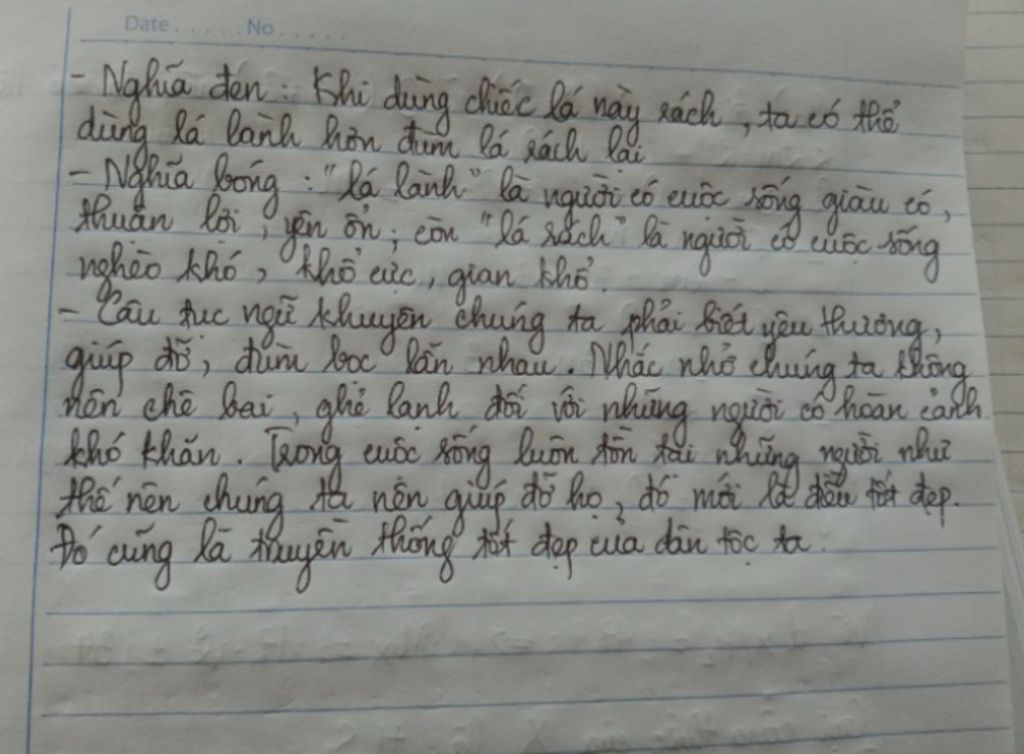 Date ..... No .....
- Nghĩa đen : Khi dùng chiếc lá này rách, ta có thể
dùng lá lành hơn đùm lá rách lại
- Nghĩa bóng : "lá lành" là người có cuộc sống giàu có,
thuận lợi, yên ổn; còn "lá rách" là người có cuộc sống
nghèo khó, khổ cực, gian khổ.
- Câu tục ngữ khuyên chúng ta phải biết yêu thương,
giúp đỡ, đùm bọc lẫn nhau. Nhắc nhở chúng ta không
nên chê bai, ghẻ lạnh đối với những người có hoàn cảnh
khó khăn. Trong cuộc sống luôn tồn tại những người như
thế nên chúng ta nên giúp đỡ họ, đó mới là điều tốt đẹp.
Đó cũng là truyền thống tốt đẹp của dân tộc ta.